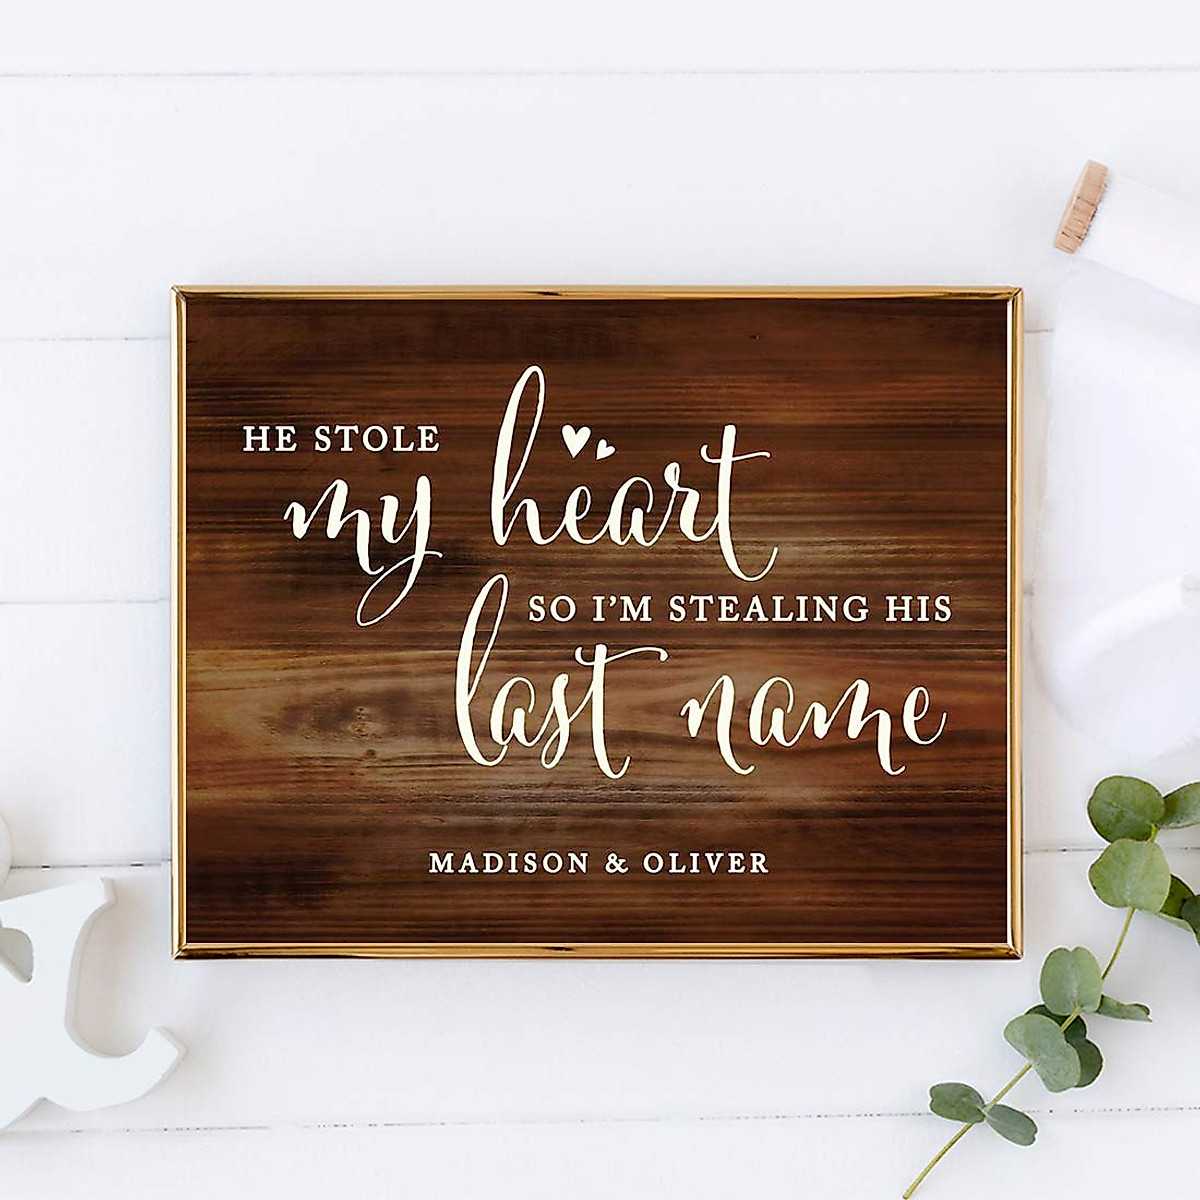 HE STOLE
my heart
SO I'M STEALING HIS
last name
MADISON & OLIVER